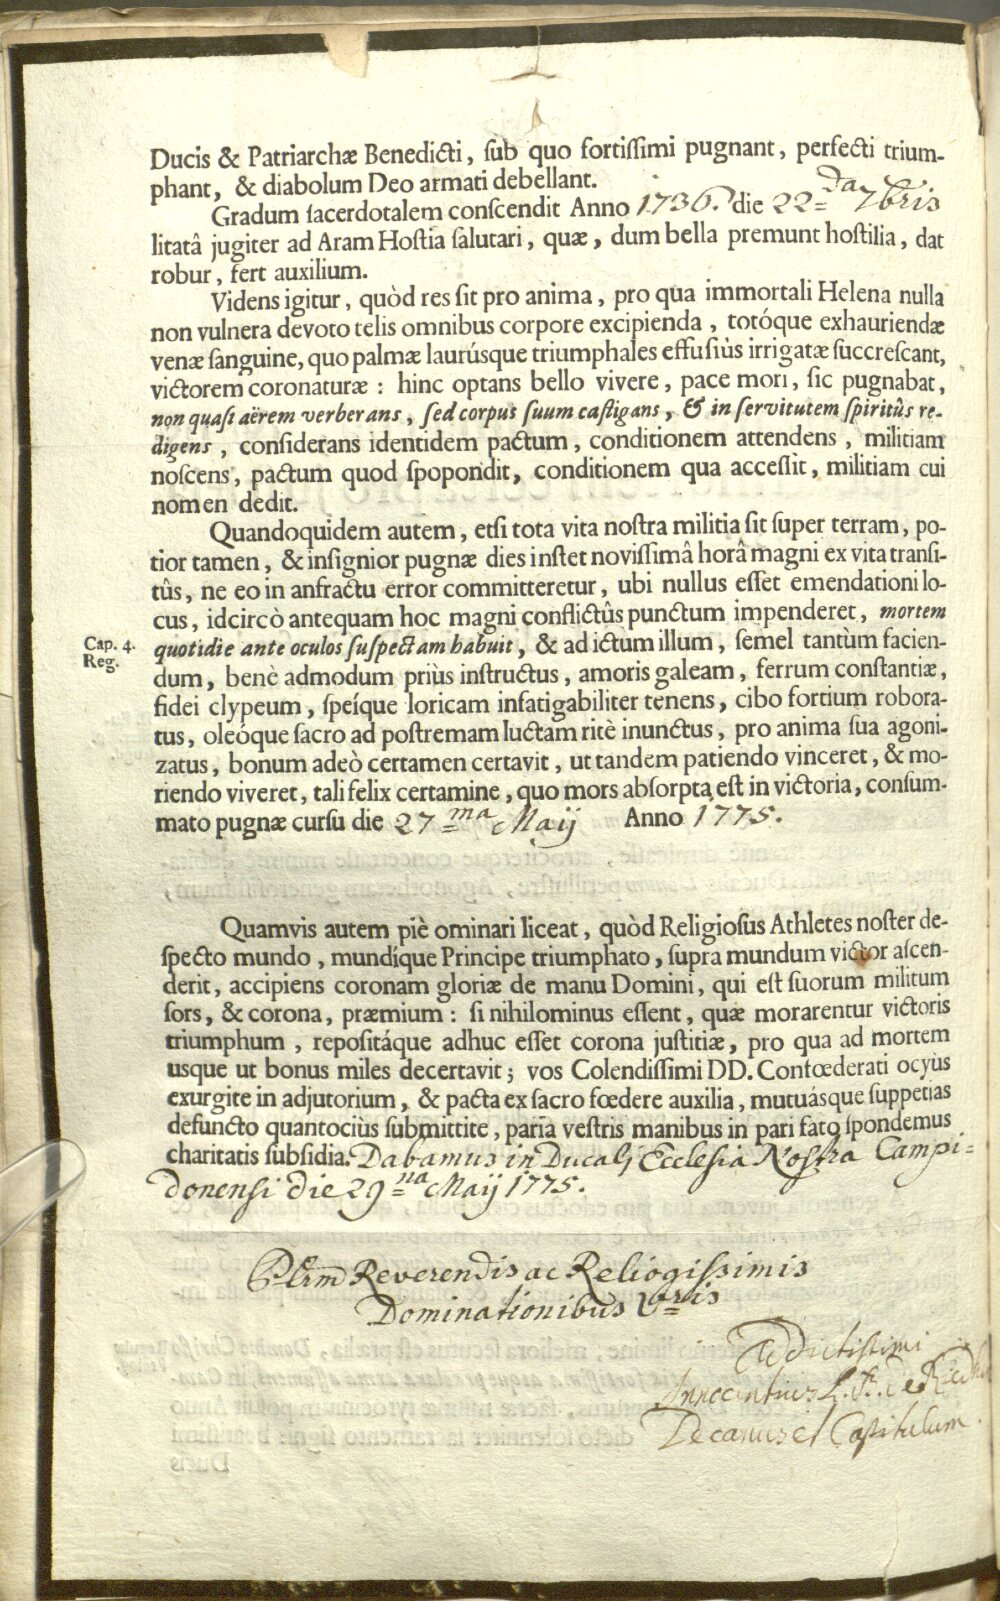 Ducis & Patriarchæ Benedicti, ſub quo fortiſſimi pugnant, perfecti trium-
phant, & diabolum Deo armati debellant.
Gradum ſacerdotalem conſcendit Anno 1736. die 22da 7bris
litatâ jugiter ad Aram Hoſtia ſalutari, quæ, dum bella premunt hoſtilia, dat
robur, fert auxilium.
Videns igitur, quòd res ſit pro anima, pro qua immortali Helena nulla
non vulnera devoto telis omnibus corpore excipienda, totóque exhauriendæ
venæ ſanguine, quo palmæ laurúsque triumphales effuſiùs irrigatæ ſuccreſcant,
victorem coronaturæ: hinc optans bello vivere, pace mori, ſic pugnabat,
non quaſi aërem verberans, ſed corpus ſuum caſtigans, & in ſervitutem ſpiritûs re-
digens, conſiderans identidem pactum, conditionem attendens, militiam
noſcens, pactum quod ſpopondit, conditionem qua acceſſit, militiam cui
nomen dedit.
Quandoquidem autem, etſi tota vita noſtra militia ſit ſuper terram, po-
tior tamen, & inſignior pugnæ dies inſtet noviſſimâ horâ magni ex vita tranſi-
tûs, ne eo in anfractu error committeretur, ubi nullus eſſet emendationi lo-
cus, idcircò antequam hoc magni conflictûs punctum impenderet, mortem
Cap. 4.
Reg.
quotidie ante oculos ſuſpectam habuit, & ad ictum illum, ſemel tantùm facien-
dum, benè admodum priùs inſtructus, amoris galeam, ferrum conſtantiæ,
fidei clypeum, ſpeíque loricam infatigabiliter tenens, cibo fortium robora-
tus, oleóque ſacro ad poſtremam luctam ritè inunctus, pro anima ſua agoni-
zatus, bonum adeò certamen certavit, ut tandem patiendo vinceret, & mo-
riendo viveret, tali felix certamine, quo mors abſorpta eſt in victoria, conſum-
mato pugnæ curſu die 27ma Maij Anno 1775.
Quamvis autem piè ominari liceat, quòd Religioſus Athletes noſter de-
ſpecto mundo, mundíque Principe triumphato, ſupra mundum victor aſcen-
derit, accipiens coronam gloriæ de manu Domini, qui eſt ſuorum militum
ſors, & corona, præmium: ſi nihilominus eſſent, quæ morarentur victoris
triumphum, repoſitáque adhuc eſſet corona juſtitiæ, pro qua ad mortem
usque ut bonus miles decertavit; vos Colendiſſimi DD. Confœderati ocyùs
exurgite in adjutorium, & pacta ex ſacro fœdere auxilia, mutuásque ſuppetias
defuncto quantociùs ſubmittite, paria veſtris manibus in pari fato ſpondemus
charitatis ſubſidia. Dabamus in Ducali Ecclesia Nostra Campi=
donensi die 29na Maij 1775.
Plrm Reverendis ac Religiosissimis
Dominationibus Vris
Addictissimi
Innocentius
Decanus et Capitulum.